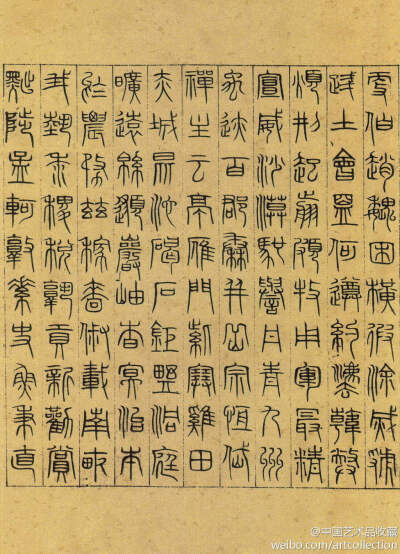 更伯趙魏困橫假涂滅虢
踐土會盟何遵約法韓弊
煩刑起翦頗牧用軍最精
宣威沙漠馳譽丹青九州
禹迹百郡秦并岳宗恆岱
禪主云亭雁門紫塞雞田
赤城昆池碣石鉅野洞庭
曠遠綿邈巖岫杳冥治本
於農務茲稼穡俶載南畝
我藝黍稷稅熟貢新勸賞
黜陟孟軻敦素史魚秉直
@中国艺术品收藏
weibo.com/artcollection